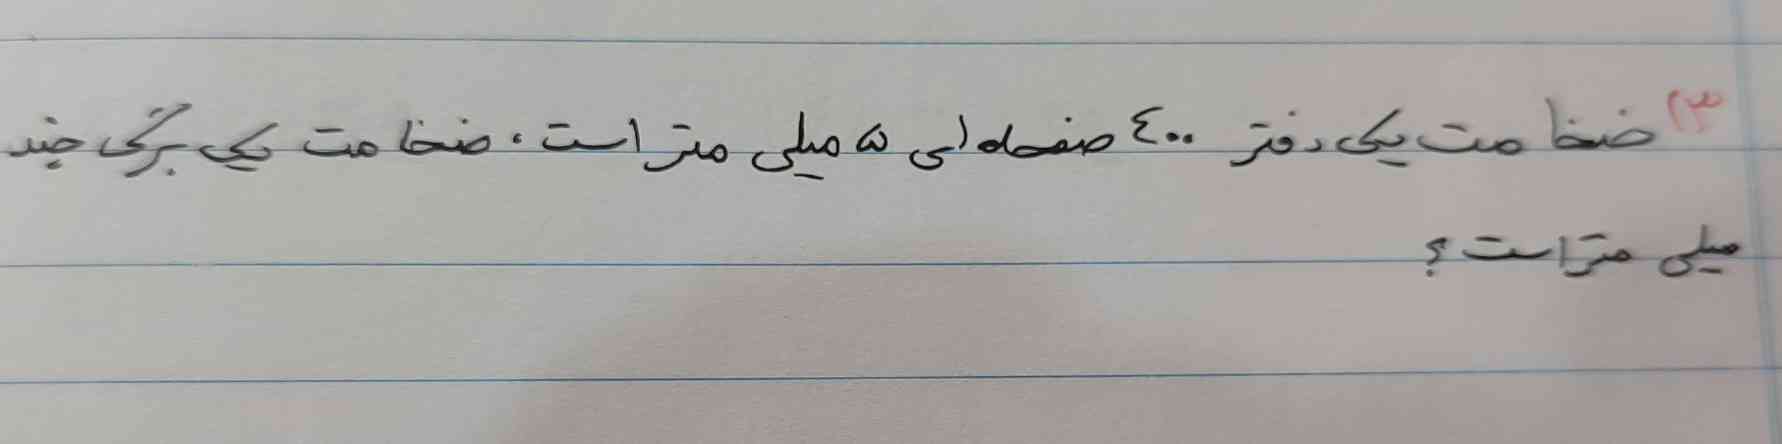 ۱۳ ضخامت یک دفتر ۴۰۰ صفحه ای ۵ میلی متر است، ضخامت یک برگ چند
میلی متر است؟